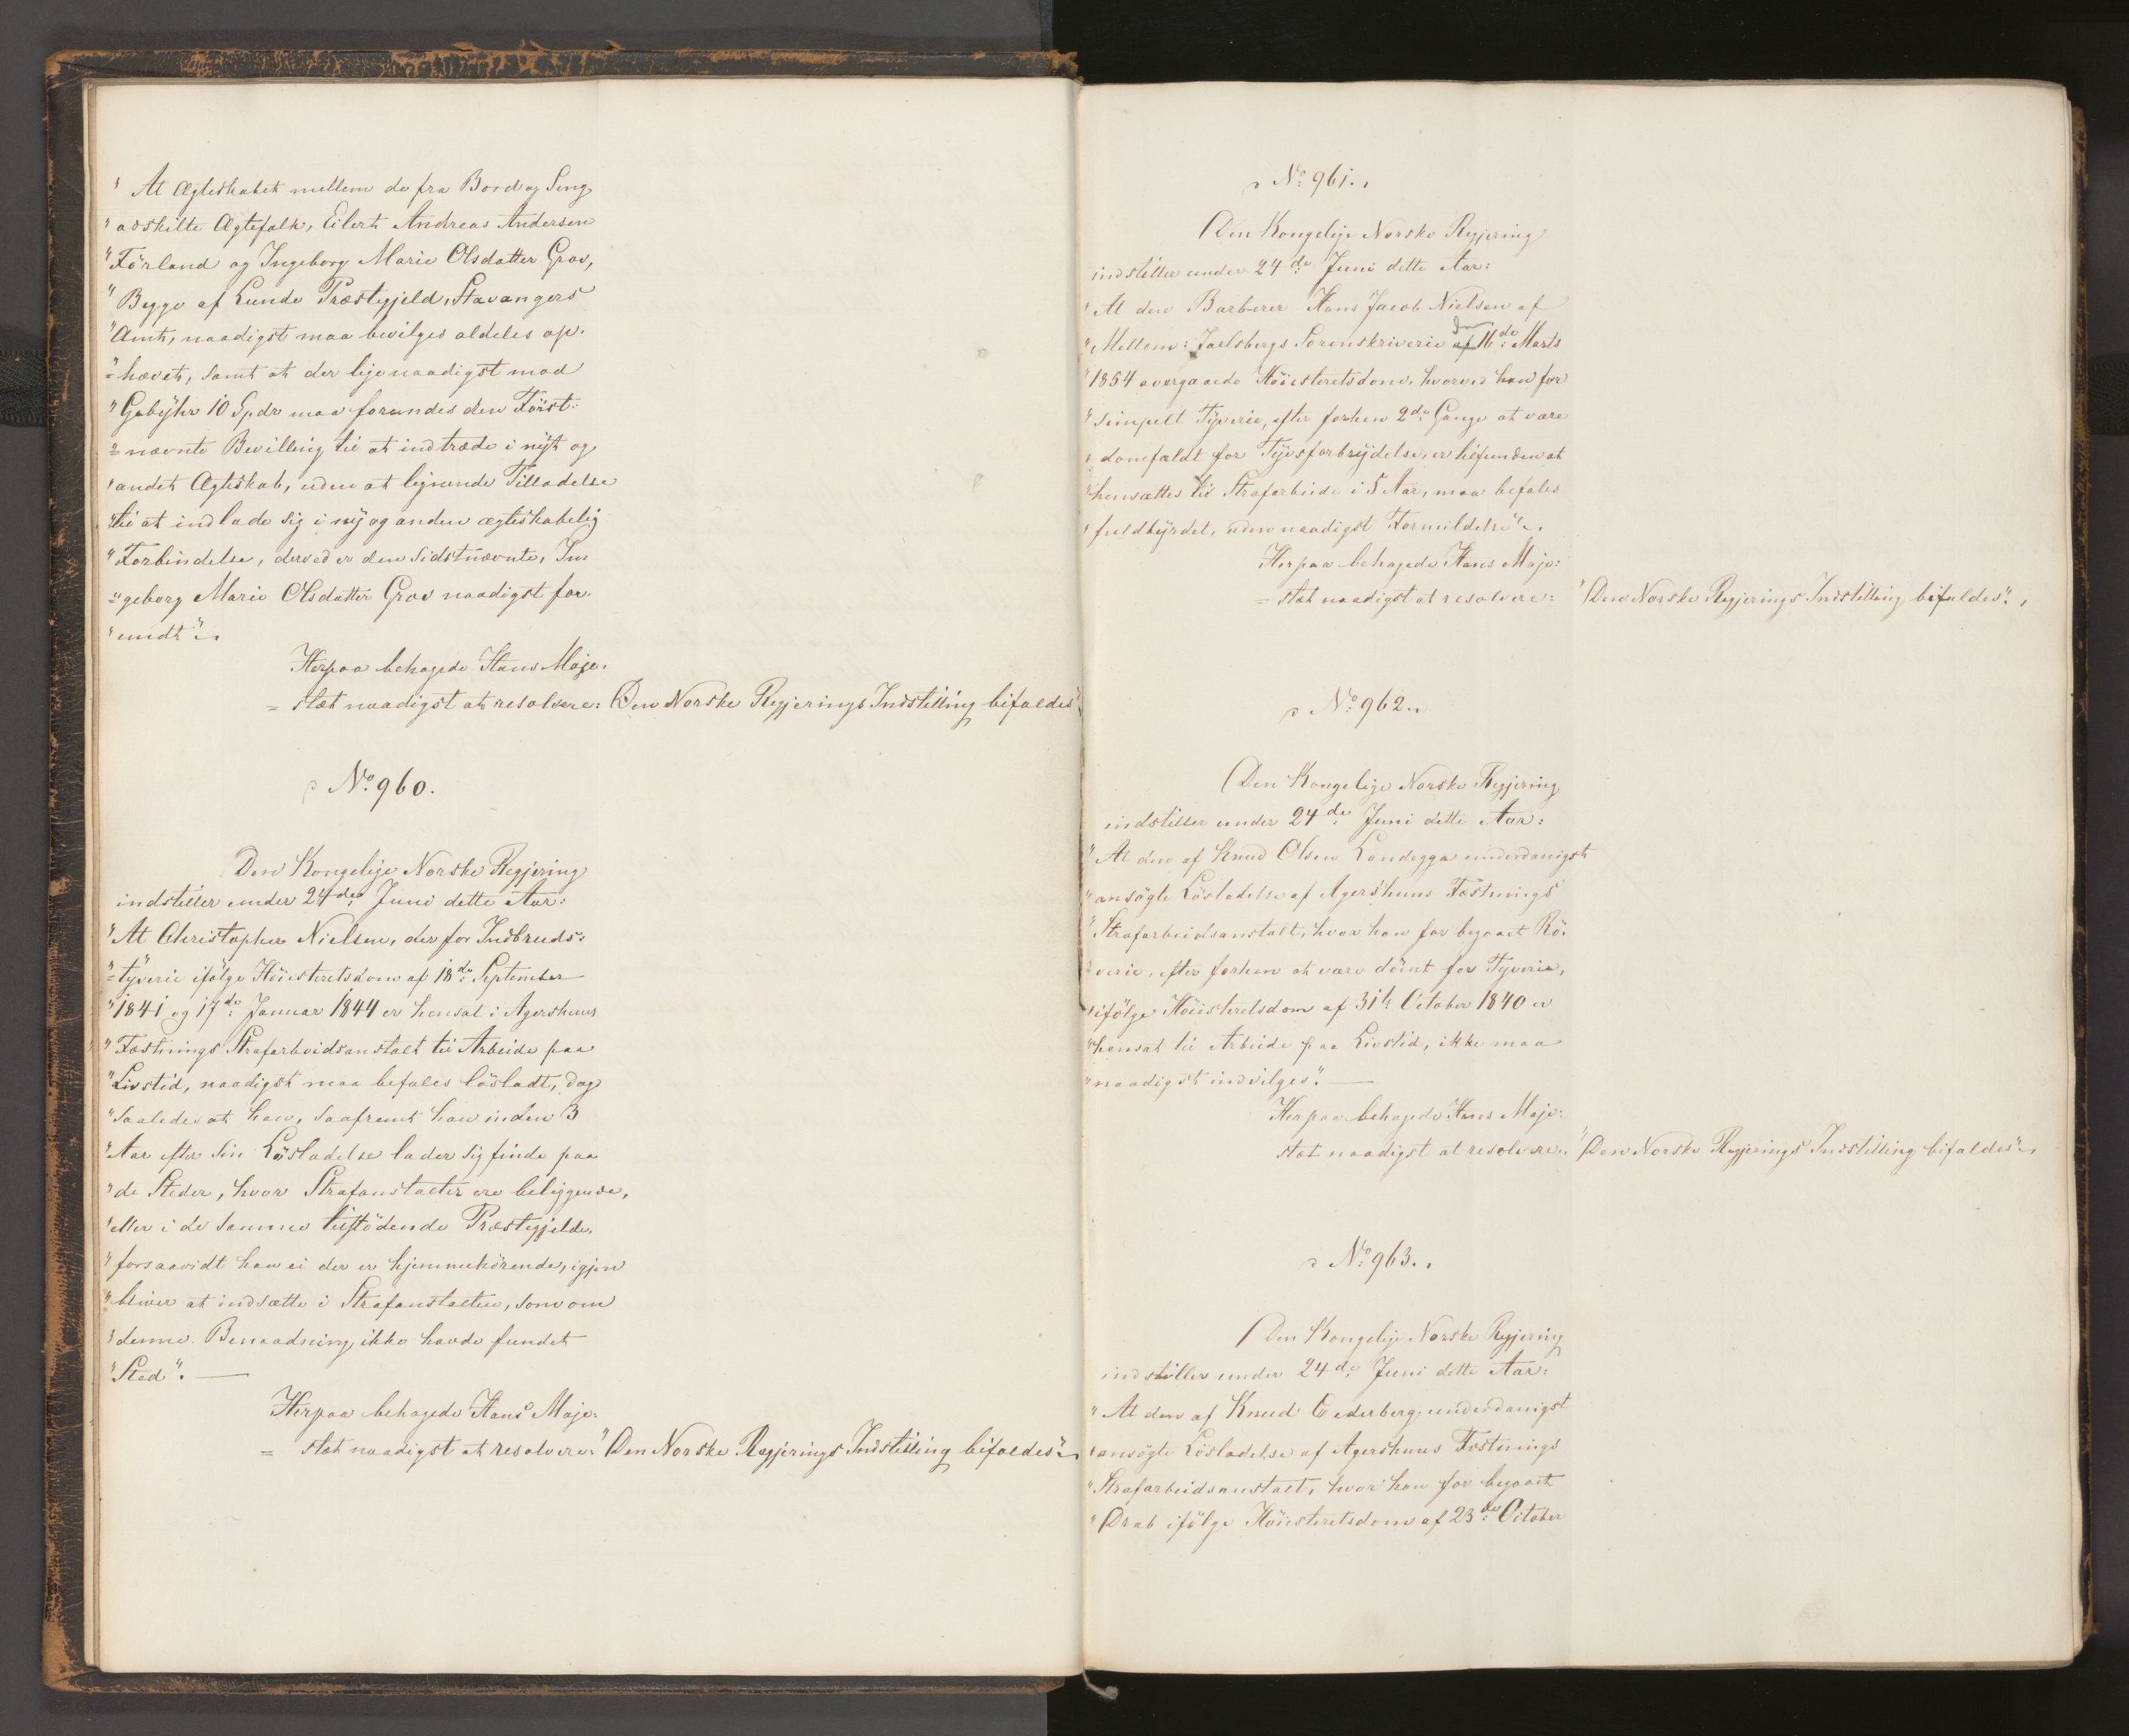 " At Ægteskabet mellem de fra Bord og Seng
" adskilte Ægtefolk, Eilert Andreas Andersen
" Förland og Ingeborg Marie Olsdatter Grov,
" Begge af Lunde Præstegjeld, Stavangers
" Amt, naadigst maa bevilges aldeles op-
"= hævet, samt at der ligenaadigst mod
" Gebyhr 10 Spdr maa forundes den Först-
"= nævnte Bevilling til at indtræde i nyt og
" andet Ægteskab, uden at lignende Tilladelse
" til at indlade sig i ny og anden ægteskabelig
" Forbindelse, derved er den Sidstnævnte, In-
"= geborg Marie Olsdatter Grov naadigst for-
" undt".
Herpaa behagede Hans Maje-
= stæt naadigst at resolvere: Den Norske Regjerings Indstilling bifaldes"
No 960.
Den Kongelige Norske Regjering
indstiller under 24de Juni dette Aar:
" At Christopher Nielsen, der for Indbruds-
"= tyverie ifölge Höiesteretsdom af 18de September
" 1841 og 17de Januar 1844 er hensat i Agershuus
" Fæstnings Strafarbeidsanstalt til Arbeide paa
" Livstid, naadigst maa befales lösladt, dog
" saaledes at han, saafremt han inden 3
" Aar efter sin Lösladelse lader sig finde paa
" de Steder, hvor Strafanstalter ere beliggende,
" eller i de samme tilstödende Præstegjelde,
" forsaavidt han ei der er hjemmehörende, igjen
" bliver at indsætte i Strafanstalten, som om
" denne Benaadning ikke havde fundet
" Sted". —
Herpaa behagede Hans Maje-
= stæt naadigst at resolvere: "Den Norske Regjerings Indstilling bifaldes".
No 961.
Den Kongelige Norske Regjering
indstiller under 24de Juni dette Aar:
" At den Barberer Hans Jacob Nielsen af
" Mellem-Jarlsbergs Sorenskriverie af den 16de Marts
" 1854 overgaaede Höiesteretsdom, hvorved han for
" simpelt Tyverie, efter forhen 2de Gange at være
" domfældt for Tyvsforbrydelse, er tilfunden at
" hensættes til Strafarbeide i 5 Aar, maa befales
" fuldbyrdet, uden naadigst Formildelse".
Herpaa behagede Hans Maje-
= stæt naadigst at resolvere: "Den Norske Regjerings Indstilling bifaldes".
No 962.
Den Kongelige Norske Regjering
indstiller under 24de Juni dette Aar:
" At den af Knud Olsen Landegga underdanigst
" ansögte Lösladelse af Agershuus Fæstnings
" Strafarbeidsanstalt, hvor han for begaaet Rö-
"= verie, efter forhen at være dömt for Tyverie,
" ifölge Höiesteretsdom af 31te October 1840 er
" hensat til Arbeide paa Livstid, ikke maa
" naadigst indvilges". —
Herpaa behagede Hans Maje-
stæt naadigst at resolvere: "Den Norske Regjerings Indstilling bifaldes".
No 963.
Den Kongelige Norske Regjering
indstiller under 24de Juni dette Aar:
" At den af Knud Cederberg underdanigst
" ansögte Lösladelse af Agershuus Fæstnings
" Strafarbeidsanstalt, hvor han for begaaet
" Drab ifölge Höiesteretsdom af 23de October